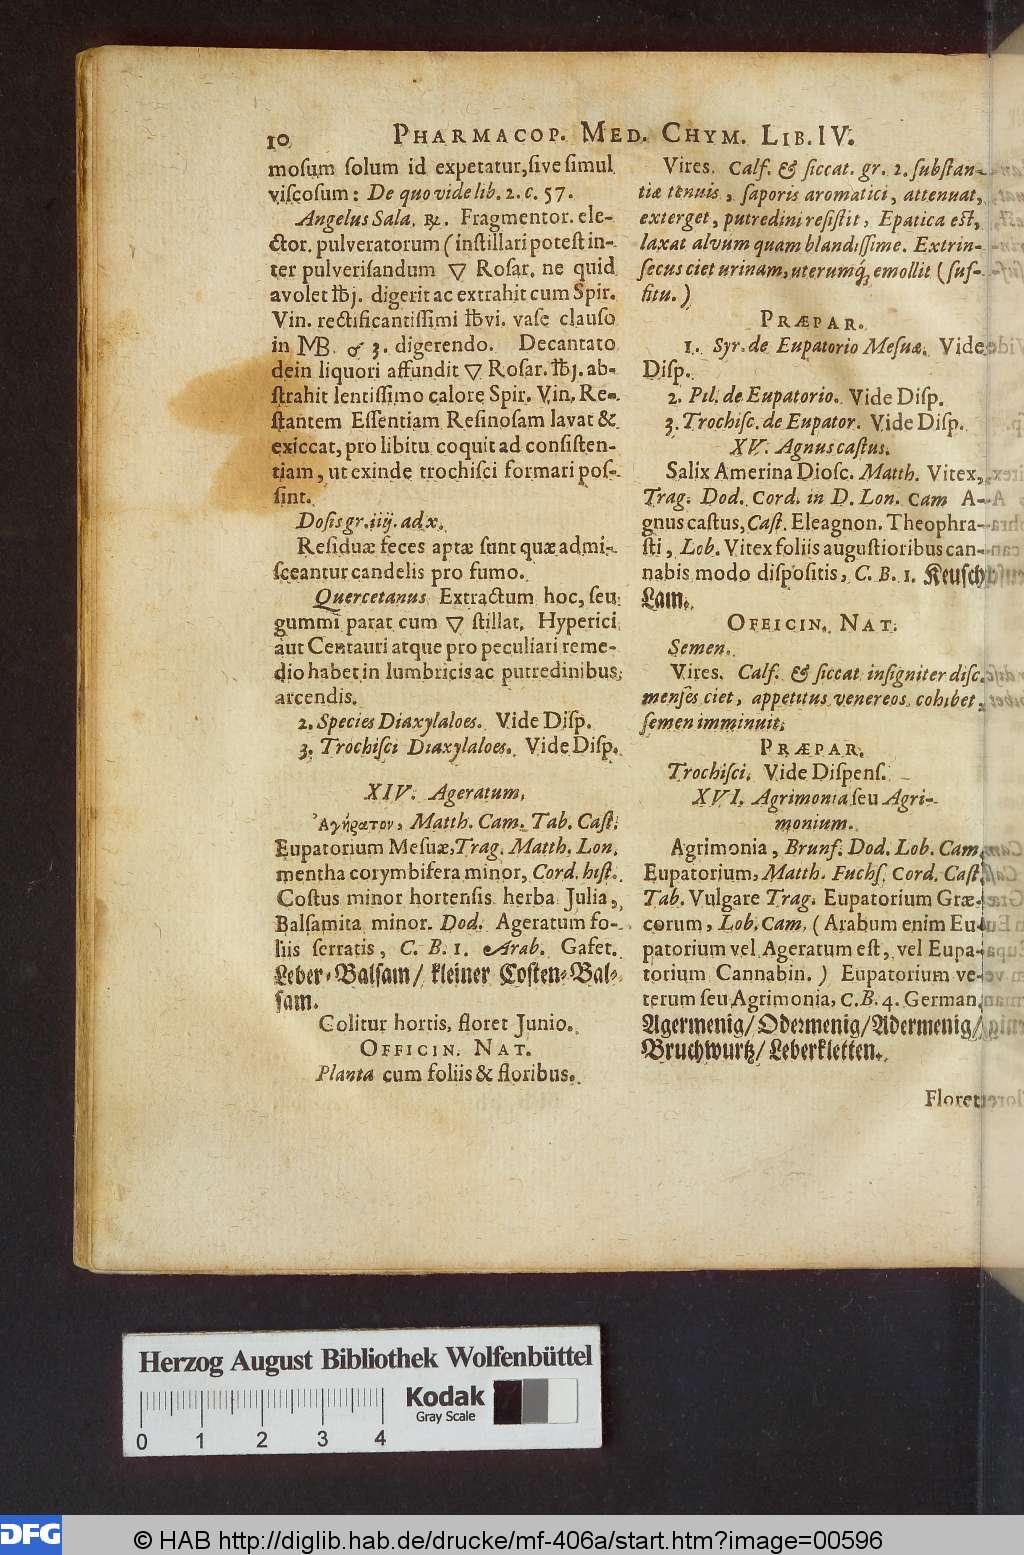 10 PHARMACOP. MED. CHYM. LIB. IV.
mosum solum id expetatur, sive simul
viscosum: De quo vide lib. 2. c. 57.
Angelus Sala. ℞. Fragmentor. ele-
ctor. pulveratorum (instillari potest in-
ter pulverisandum 🜄 Rosar. ne quid
avolet ℔j. digerit ac extrahit cum Spir.
Vin. rectificantissimi ℔vi. vase clauso
in MB. 3. digerendo. Decantato
dein liquori affundit 🜄 Rosar. ℔j. ab-
strahit lentissimo calore Spir. Vin. Re-
stantem Essentiam Resinosam lavat &
exiccat, pro libitu coquit ad consisten-
tiam, ut exinde trochisci formari pos-
sint.
Dosis gr. iiij. ad x.
Residuæ feces aptæ sunt quæ admi-
sceantur candelis pro fumo.
Quercetanus Extractum hoc, seu
gummi parat cum 🜄 stillat. Hyperici
aut Centauri atque pro peculiari reme-
dio habet in lumbricis ac putredinibus
arcendis.
2. Species Diaxylaloes. Vide Disp.
3. Trochisci Diaxylaloes. Vide Disp.
XIV. Ageratum.
Ἀγήρατον, Matth. Cam. Tab. Cast.
Eupatorium Mesuæ, Trag. Matth. Lon.
mentha corymbifera minor, Cord. hist.
Costus minor hortensis herba Julia,
Balsamita minor. Dod. Ageratum fo-
liis serratis, C. B. 1. Arab. Gafet.
Leber-Balsam/ kleiner Costen-Bal-
sam.
Colitur hortis, floret Junio.
OFFICIN. NAT.
Planta cum foliis & floribus.
Vires. Calf. & siccat. gr. 2. substan-
tiæ tenuis, saporis aromatici, attenuat,
exterget, putredini resistit, Epatica est,
laxat alvum quam blandissime. Extrin-
secus ciet urinam, uterumq́; emollit (suf-
fitu.)
PRÆPAR.
1. Syr. de Eupatorio Mesuæ. Vide
Disp.
2. Pil. de Eupatorio. Vide Disp.
3. Trochisc. de Eupator. Vide Disp.
XV. Agnus castus.
Salix Amerina Diosc. Matth. Vitex,
Trag. Dod. Cord. in D. Lon. Cam A-
gnus castus, Cast. Eleagnon. Theophra-
sti, Lob. Vitex foliis augustioribus can-
nabis modo dispositis, C. B. 1. Keusch
Lam.
OFFICIN. NAT.
Semen.
Vires. Calf. & siccat insigniter disc.
menses ciet, appetitus venereos cohibet,
semen imminuit.
PRÆPAR.
Trochisci. Vide Dispens.
XVI. Agrimonia seu Agri-
monium.
Agrimonia, Brunf. Dod. Lob. Cam.
Eupatorium, Matth. Fuchs. Cord. Cast.
Tab. Vulgare Trag. Eupatorium Græ-
corum, Lob. Cam. (Arabum enim Eu-
patorium vel Ageratum est, vel Eupa-
torium Cannabin.) Eupatorium ve-
terum seu Agrimonia, C. B. 4. German.
Agermenig/ Odermenig/ Adermenig/
Bruchwurtz/ Leberkletten.
Floret
Herzog August Bibliothek Wolfenbüttel
Kodak
Gray Scale
0 1 2 3 4
DFG
© HAB http://diglib.hab.de/drucke/mf-406a/start.htm?image=00596